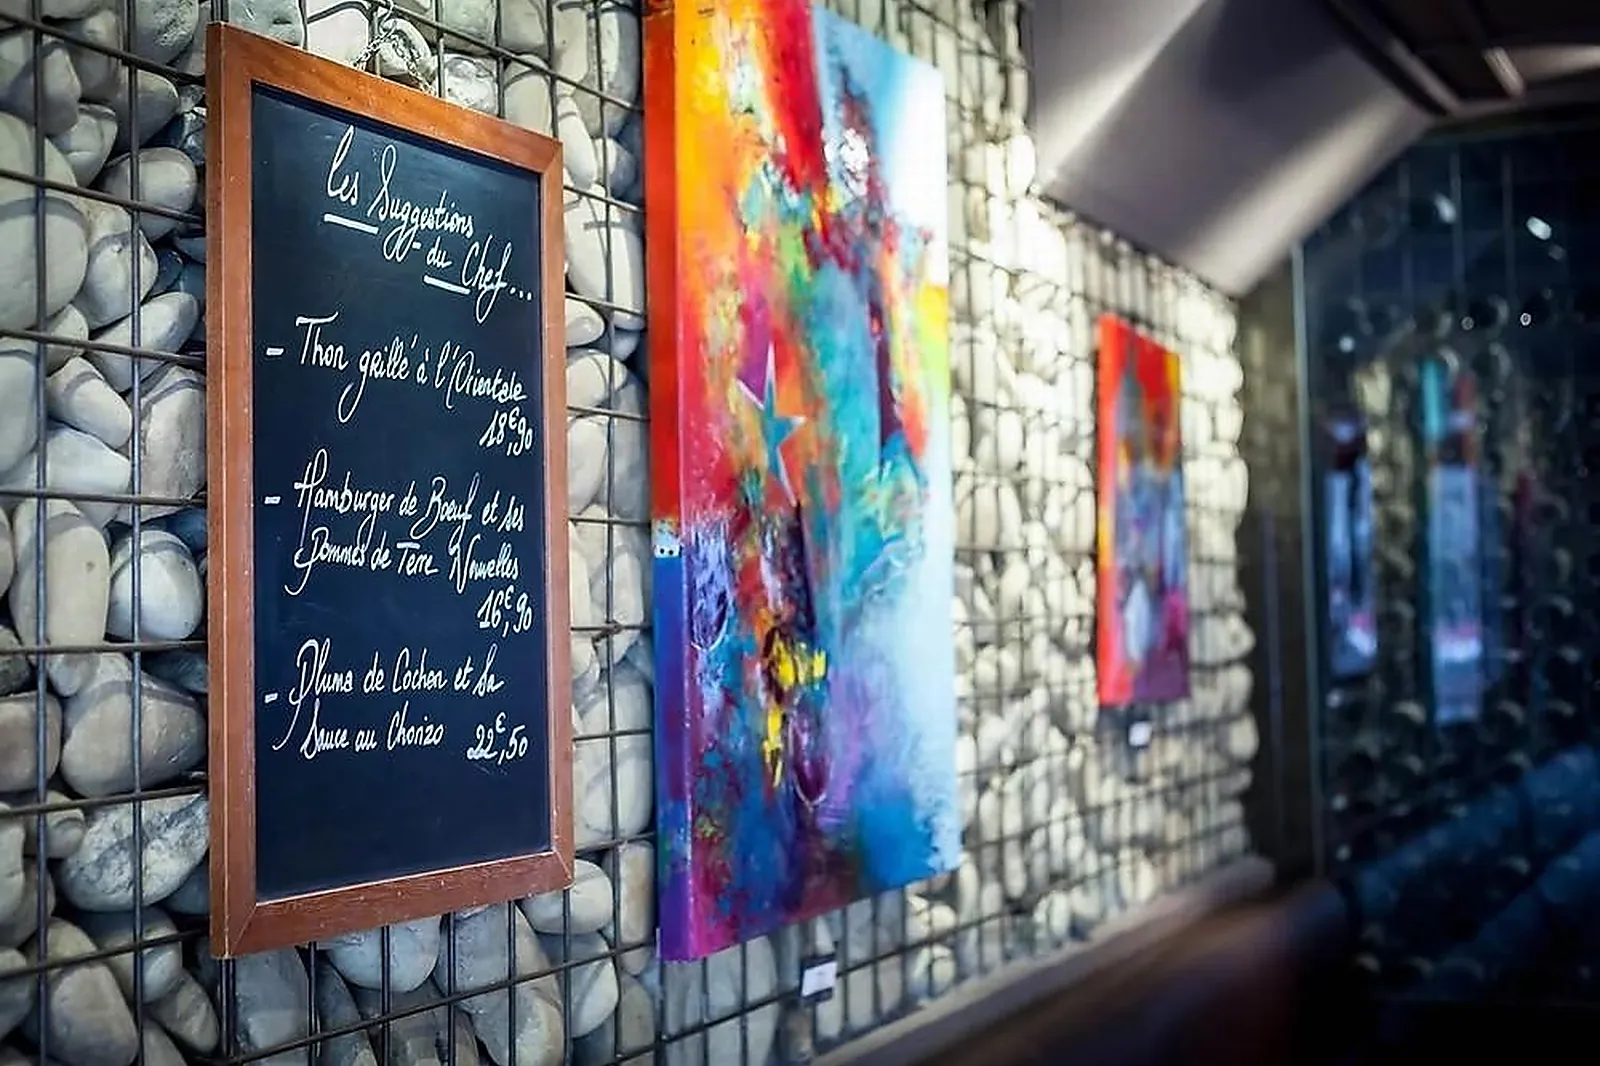 Les Suggestions
du Chef...
- Thon grillé à l'Orientale
18€,90
- Hamburger de Boeuf et ses
Pommes de Terre Nouvelles
16€,90
- Pluma de Cochon et Sa
Sauce au Chorizo 22€,50